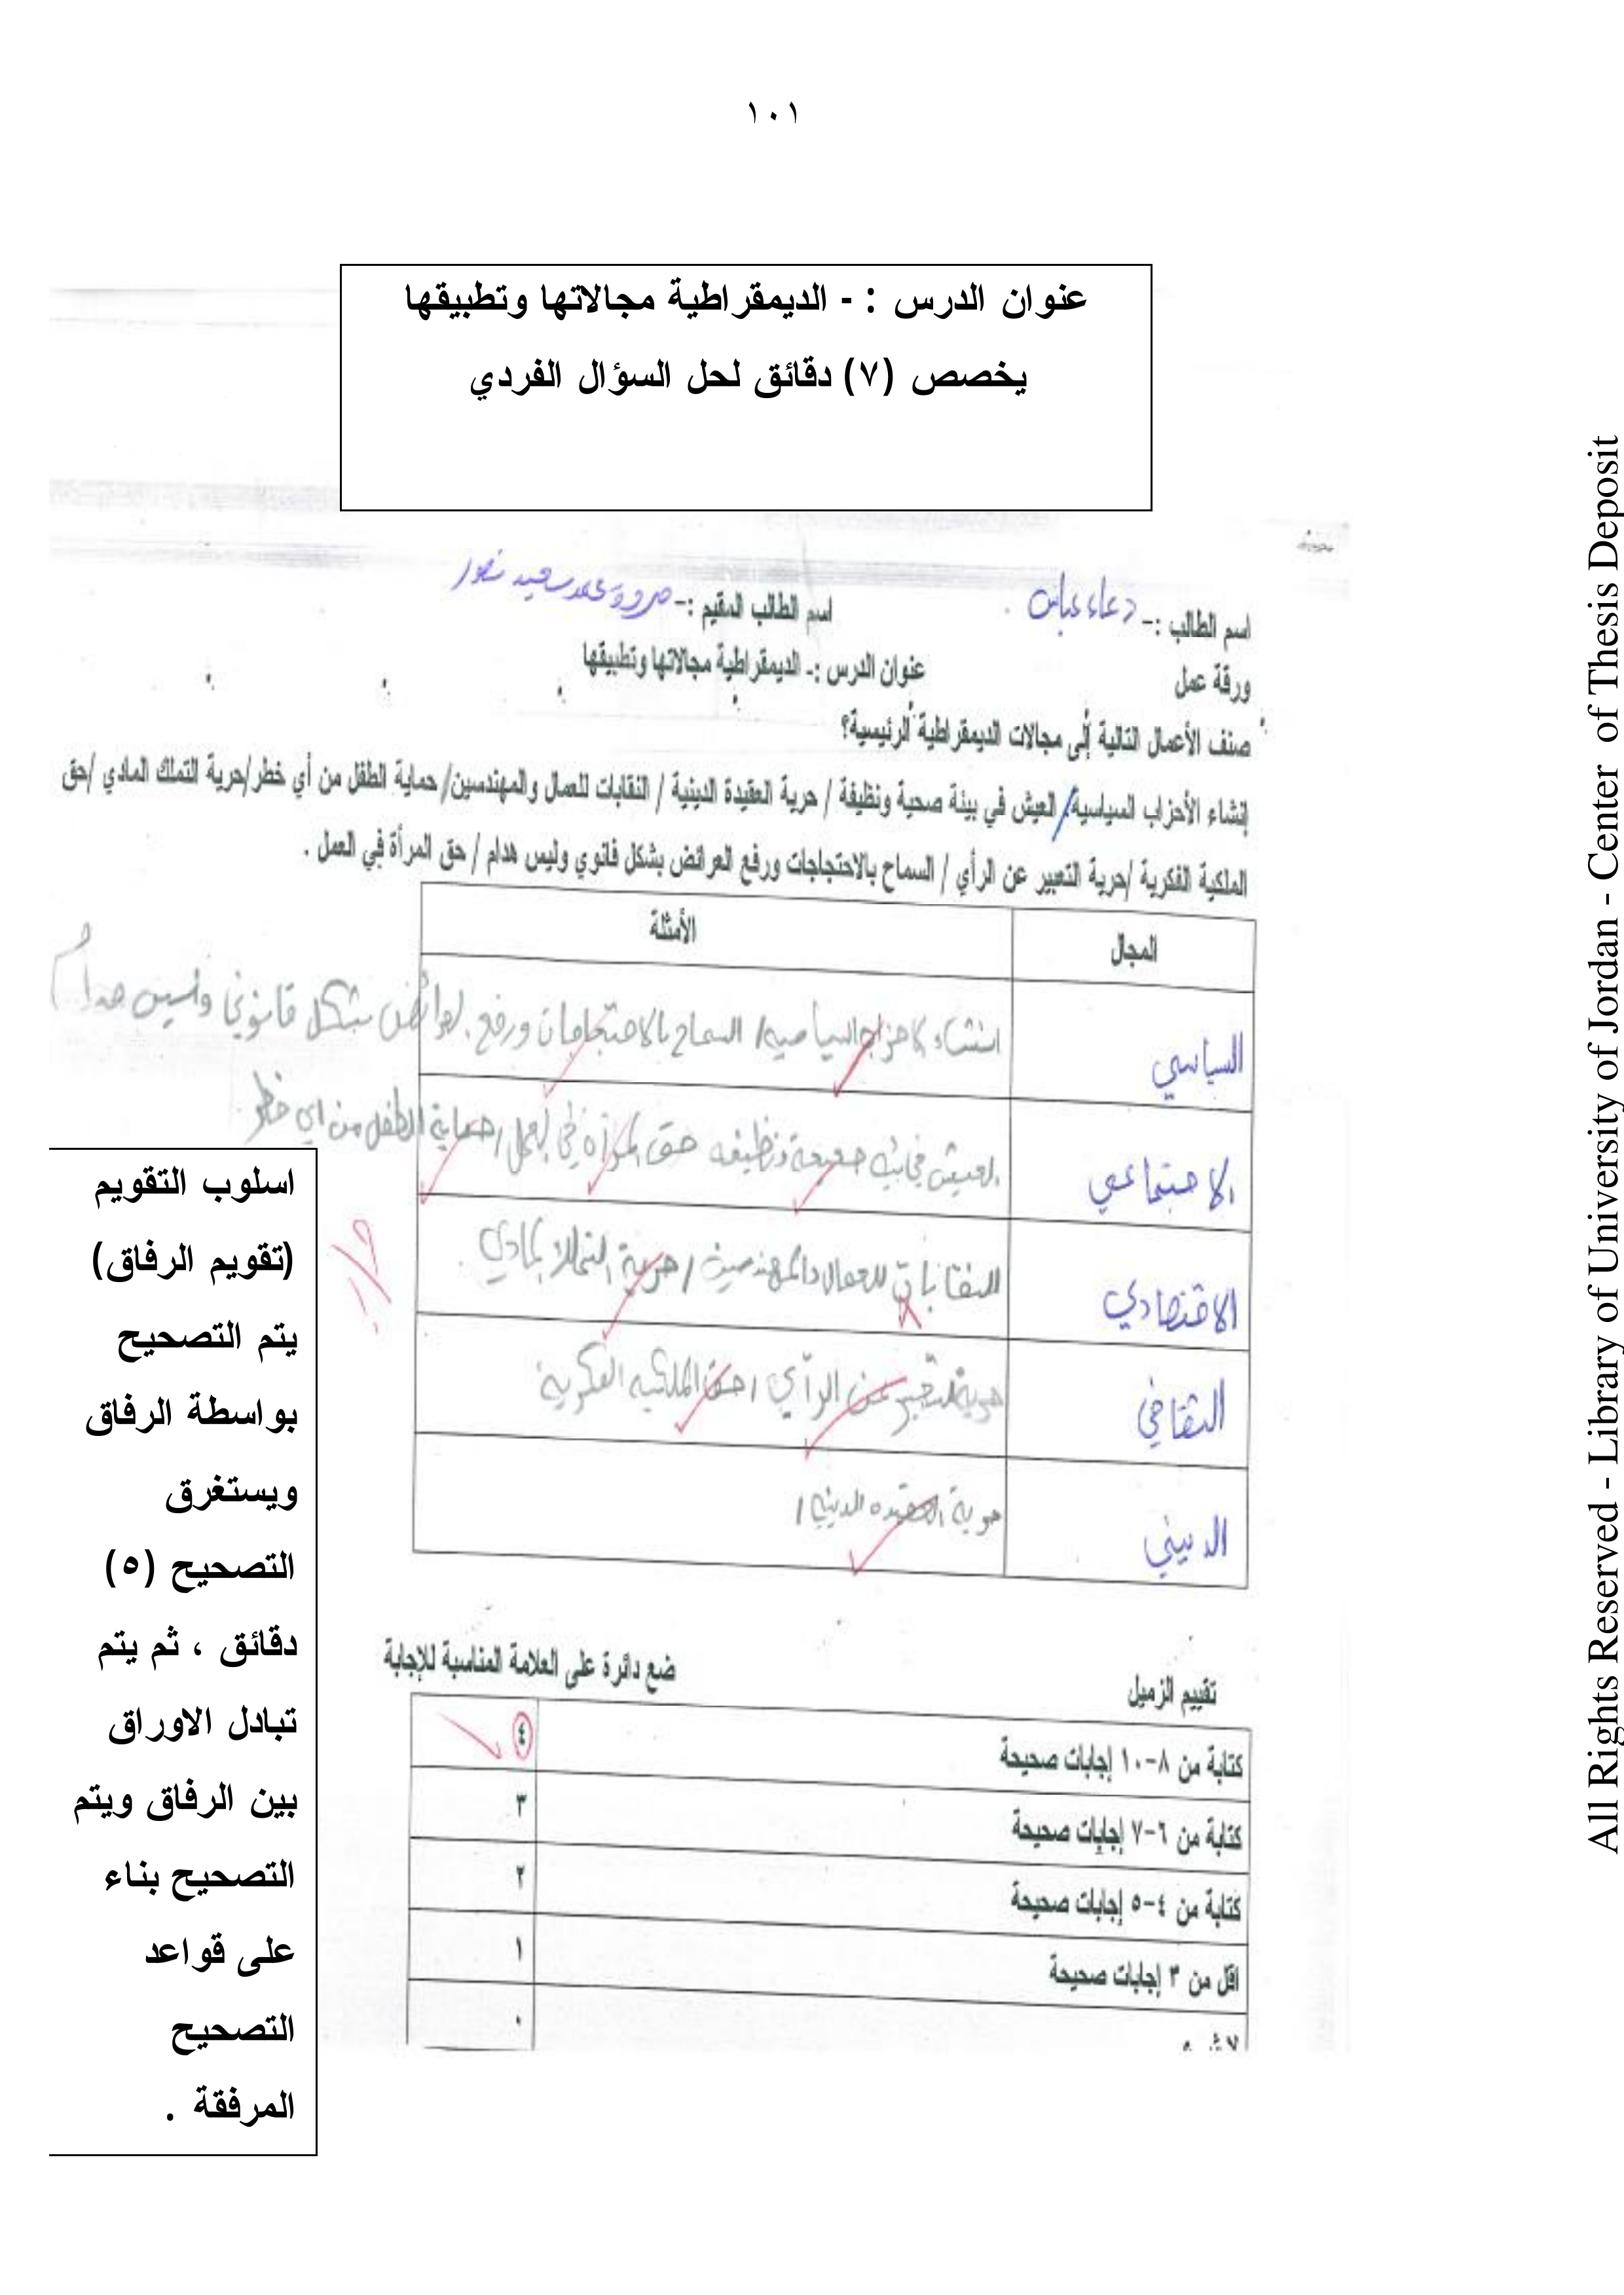 ١٠١
عنوان الدرس : - الديمقراطية مجالاتها وتطبيقها
يخصص (٧) دقائق لحل السؤال الفردي
اسم الطالب :- دعاء عباس . اسم الطالب المقيم :- مروة محمد سعيد
ورقة عمل عنوان الدرس :- الديمقراطية مجالاتها وتطبيقها
صنف الأعمال التالية إلى مجالات الديمقراطية الرئيسية؟
إنشاء الأحزاب السياسية/ العيش في بيئة صحية ونظيفة / حرية العقيدة الدينية / النقابات للعمال والمهندسين/ حماية الطفل من أي خطر/حرية التملك المادي /حق
الملكية الفكرية /حرية التعبير عن الرأي / السماح بالاحتجاجات ورفع العرائض بشكل قانوي وليس هدام / حق المرأة في العمل .
المجال الأمثلة
السياسي انشاء الاحزاب السياسيه/ السماح بالاحتجاجات ورفع العرائض بشكل قانوني وليس هدام
الاجتماعي العيش في بيئه صحيحة ونظيفه حق المرأة في العمل / حماية الطفل من اي خطر .
الاقتصادي النقابات للعمال والمهندسين / حرية التملك المادي .
الثقافي حرية التعبير عن الرأي / حق الملكيه الفكرية
الديني حرية العقيده الدينيه /
تقييم الزميل ضع دائرة على العلامة المناسبة للإجابة
كتابة من ٨-١٠ إجابات صحيحة ٤
كتابة من ٦-٧ إجابات صحيحة ٣
كتابة من ٤-٥ إجابات صحيحة ٢
اقل من ٣ إجابات صحيحة ١
٠
اسلوب التقويم
(تقويم الرفاق)
يتم التصحيح
بواسطة الرفاق
ويستغرق
التصحيح (٥)
دقائق ، ثم يتم
تبادل الاوراق
بين الرفاق ويتم
التصحيح بناء
على قواعد
التصحيح
المرفقة .
All Rights Reserved - Library of University of Jordan - Center of Thesis Deposit